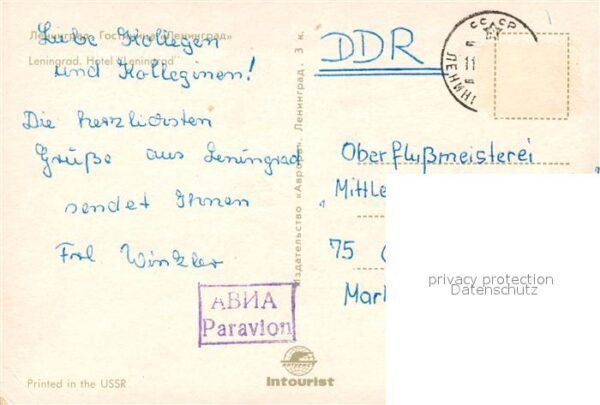 Ленинград. Гостиница «Ленинград»
Leningrad. Hotel "Leningrad"
Liebe Kollegen
und Kolleginen!
Die herzlichsten
Grüße aus Leningrad
sendet Ihnen
Frl Winkler
АВИА
Paravion
Printed in the USSR
Издательство «Аврора». Ленинград. 3 к.
Intourist
DDR
СССР
ЛЕНИН
11
Oberflußmeisterei
"Mittle
75
Mar
privacy protection
Datenschutz